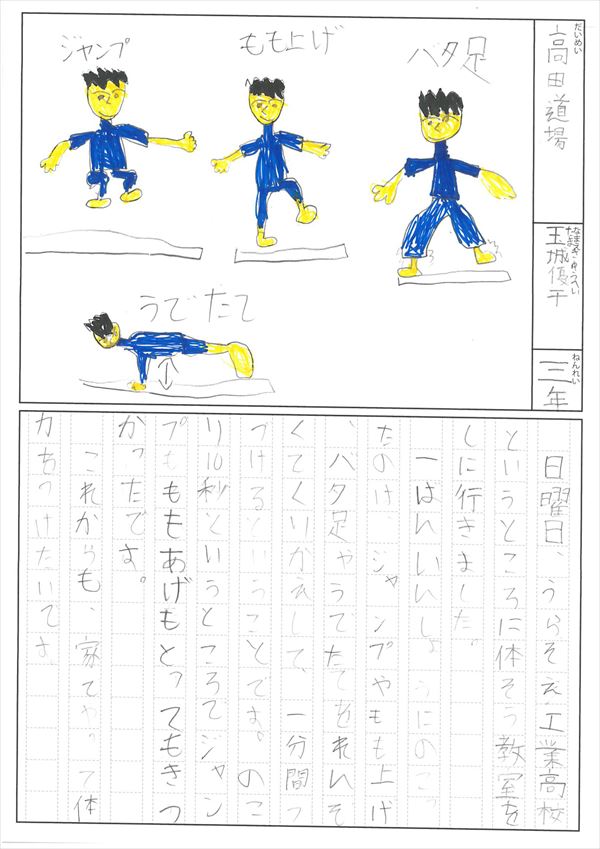 だいめい
高田道場
なまえ
玉城優
ねんれい
三年
バタ足
もも上げ
ジャンプ
うでたて
日曜日、うらそえ工業高校
というところに体そう教室を
しに行きました。
一ばんいんしょうにのこっ
たのは、ジャンプやもも上げ
、バタ足やうでたてをれんぞ
くでくりかえして、一分間つ
づけるということです。のこ
り10秒というところでジャン
プもももあげもとってもきつ
かったです。
これからも、家でやって体
力をつけたいです。